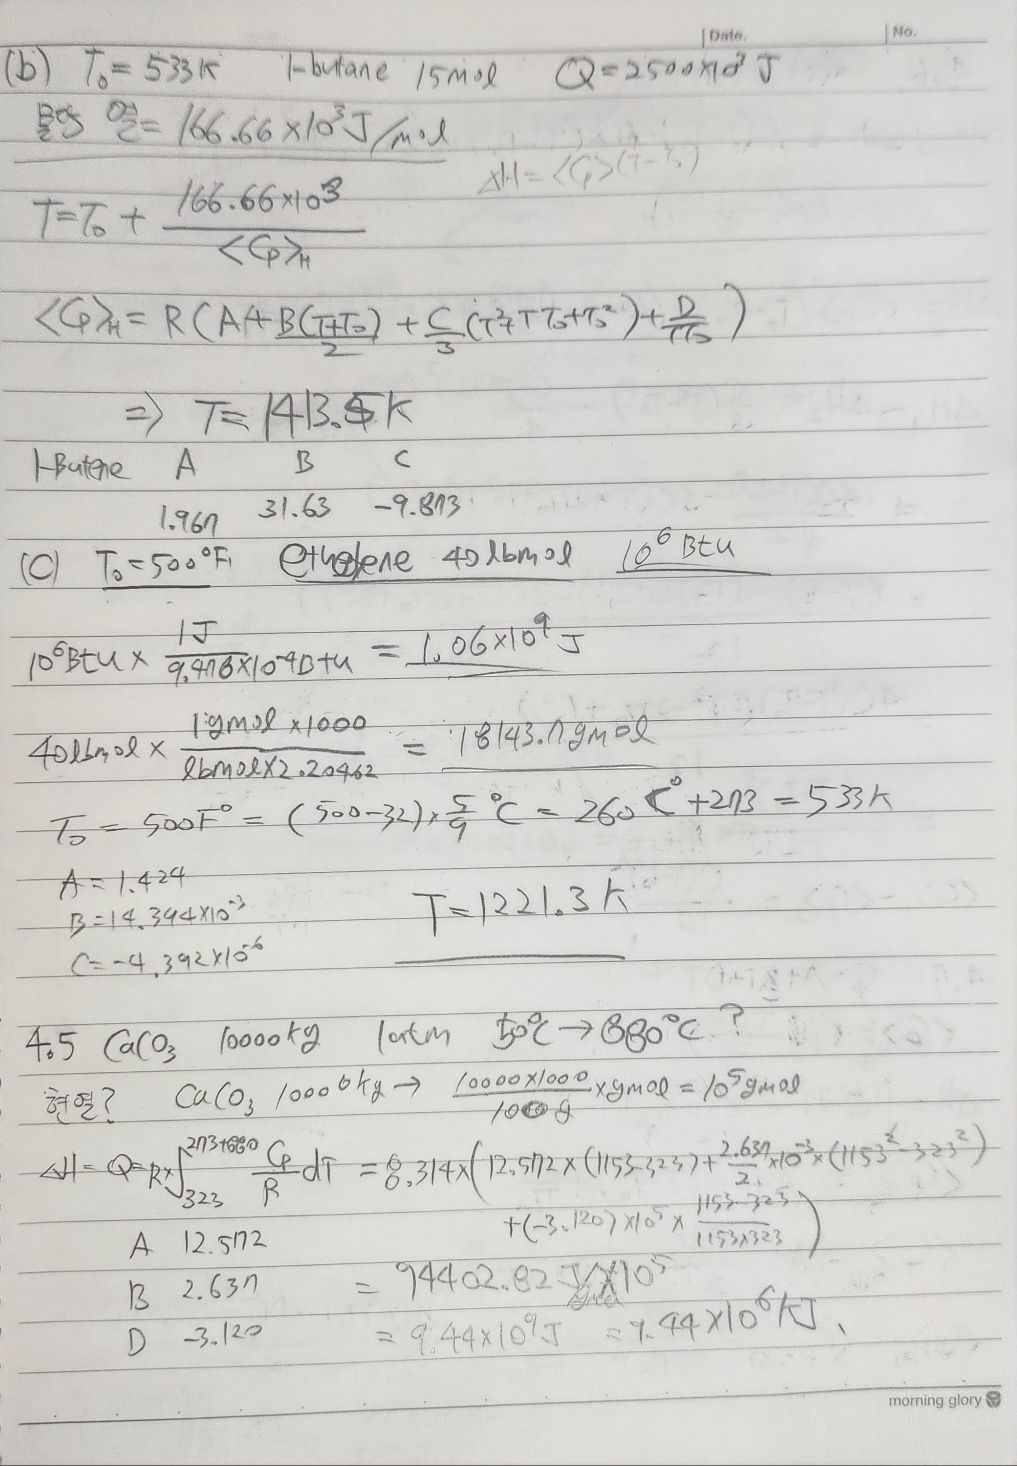 Date. No.
(b) T₀ = 533K 1-butane 15mol Q=2500×10³ J
몰당 열= 166.66×10³J/mol
ΔH=<Cp>(T-T₀)
T=T₀ + 166.66×10³ / <Cp>H
<Cp>H = R(A+B(T+T₀)/2 + C/3 (T²+TT₀+T₀²)+D/TT₀)
=> T= 1413.5K
1-Butene A B C
1.967 31.63 -9.873
(C) T₀=500°F ethylene 40 lbmol 10⁶ Btu
10⁶Btu × 1J / 9.478×10⁻⁴Btu = 1.06×10⁹ J
40lbmol × 1gmol×1000 / lbmol×2.20462 = 18143.7gmol
T₀ = 500F° = (500-32)×5/9 °C = 260C° +273 = 533K
A = 1.424
B=14.394×10⁻³ T=1221.3K
C=-4.392×10⁻⁶
4.5 CaCO₃ 10000kg 1atm 50°C → 880°C ?
현열? CaCO₃ 10000kg → 10000×1000 / 100g ×gmol = 10⁵gmol
ΔH=Q=R×∫₃₂₃²⁷³⁺⁸⁸⁰ Cp/R dT = 8.314×(12.572×(1153-323)+2.637/2×10⁻³×(1153²-323²)
+(-3.120)×10⁵× 1153-323 / 1153×323)
A 12.572
B 2.637 = 94402.82 J/gmol ×10⁵
D -3.120 = 9.44×10⁹J = 9.44×10⁶kJ.
morning glory